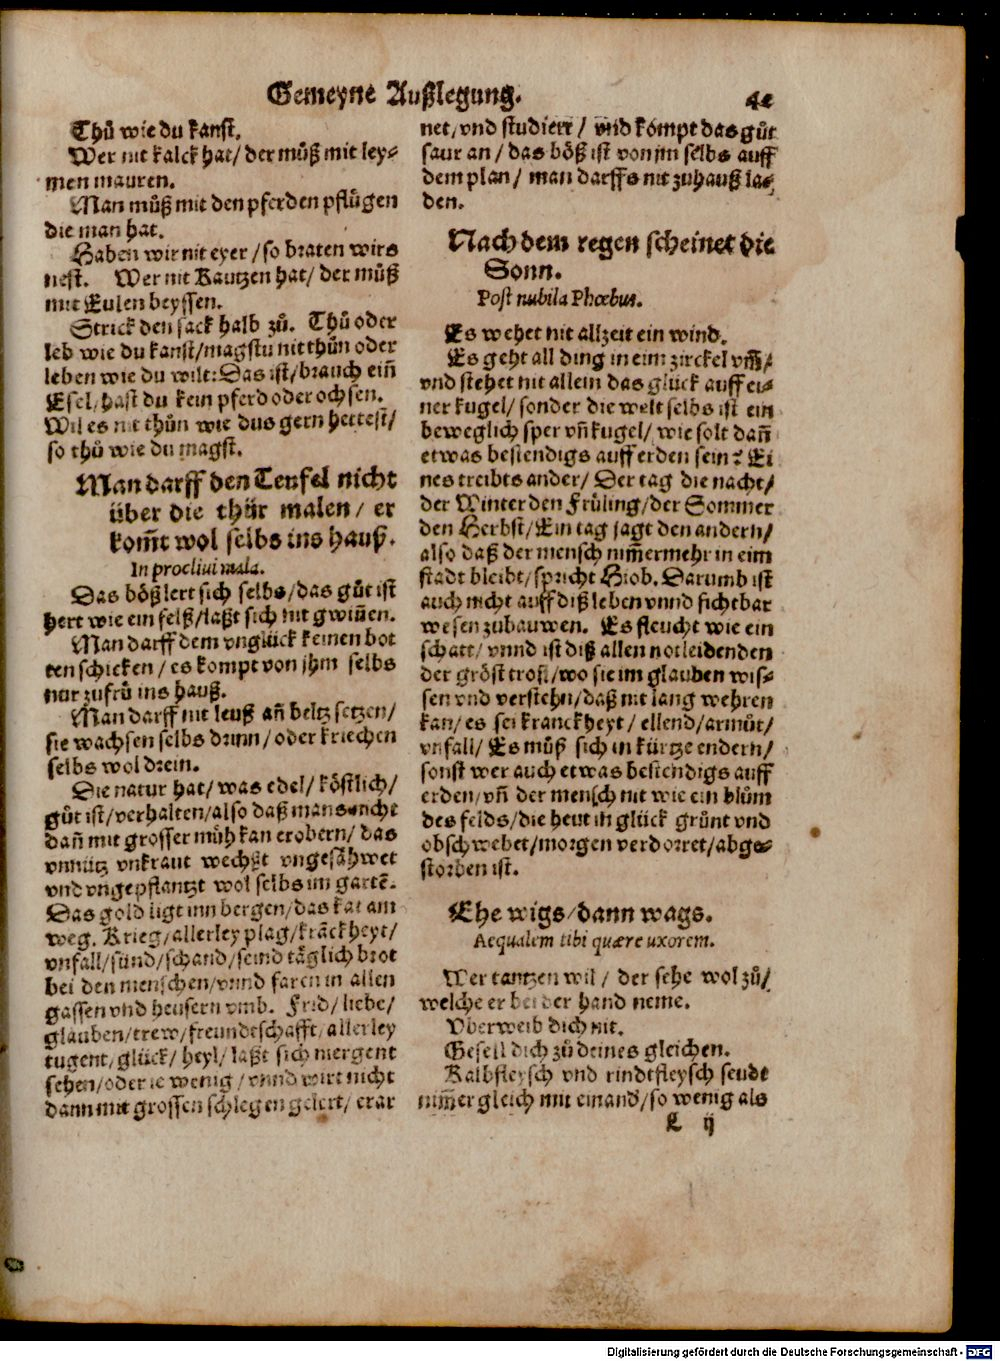 Gemeyne Außlegung. 42
Thů wie du kanst.
Wer nit kalck hat/ der můß mit ley-
men mauren.
Man můß mit den pferden pflůgen
die man hat.
Haben wir nit eyer/ so braten wirs
nest. Wer nit Kautzen hat/ der můß
mit Eulen beyssen.
Strick den sack halb zů. Thů oder
leb wie du kanst/magstu nit thůn oder
leben wie du wilt: Das ist/brauch eiñ
Esel/hast du kein pferd oder ochsen.
Wil es nit thůn wie dus gern hettest/
so thů wie du magst.
Man darff den Teufel nicht
über die thür malen/ er
kom̃t wol selbs ins hauß.
In procliui mala.
Das böß lert sich selbs/das gůt ist
hert wie ein felß/laßt sich nit gwiñen.
Man darff dem vnglück keinen bot
ten schicken/ es kompt von jhm selbs
nur zu frů ins hauß.
Man darff nit leuß añ beltz setzen/
sie wachsen selbs drinn/ oder kriechen
selbs wol drein.
Die natur hat/ was edel/ köstlich/
gůt ist/verhalten/also daß mans nicht
dañ mit grosser můh kan erobern/ das
vnnütz vnkraut wechßt vngesähwet
vnd vngepflantzt wol selbs im gartẽ.
Das gold ligt inn bergen/das kat am
weg. Krieg/allerley plag/krãckheyt/
vnfall/sünd/schand/seind täglich brot
bei den menschen/vnnd faren in allen
gassen vnd heusern vmb. Frid/ liebe/
glauben/trew/freundtschafft/allerley
tugent/glück/ heyl/ laßt sich niergent
sehen/oder ie wenig/ vnnd wirt nicht
dann mit grossen schlegen gelert/ erar
net/vnd studiert/ vnd kompt das gůt
saur an/ das böß ist von jm selbs auff
dem plan/ man darffs nit zuhauß la-
den.
Nach dem regen scheinet die
Sonn.
Post nubila Phœbus.
Es wehet nit allzeit ein wind.
Es geht all ding in eim zirckel vm̃/
vnd stehet nit allein das glück auff ei-
ner kugel/ sonder die welt selbs ist ein
beweglich sper vñ kugel/ wie solt dañ
etwas bestendigs auff erden sein? Ei
nes treibts ander/ Der tag die nacht/
der Winter den Früling/der Sommer
den Herbst/Ein tag jagt den andern/
also daß der mensch nim̃ermehr in eim
stadt bleibt/spricht Hiob. Darumb ist
auch nicht auff diß leben vnnd sichtbar
wesen zubauwen. Es fleucht wie ein
schatt/ vnnd ist diß allen notleidenden
der gröst trost/wo sie im glauben wis-
sen vnd verstehn/daß nit lang wehren
kan/ es sei kranckheyt/ ellend/armůt/
vnfall/ Es můß sich in kürtze endern/
sonst wer auch etwas bestendigs auff
erden/vñ der mensch nit wie ein blům
des felds/die heut in glück grünt vnd
obschwebet/morgen verdorret/abge-
storben ist.
Ehe wigs/dann wags.
Aequalem tibi quære uxorem.
Wer tantzen wil/ der sehe wol zů/
welche er bei der hand neme.
Vberweib dich nit.
Gesell dich zů deines gleichen.
Kalbfleysch vnd rindtfleysch seudt
nim̃er gleich mit einand/so wenig als
L ij
Digitalisierung gefördert durch die Deutsche Forschungsgemeinschaft - DFG